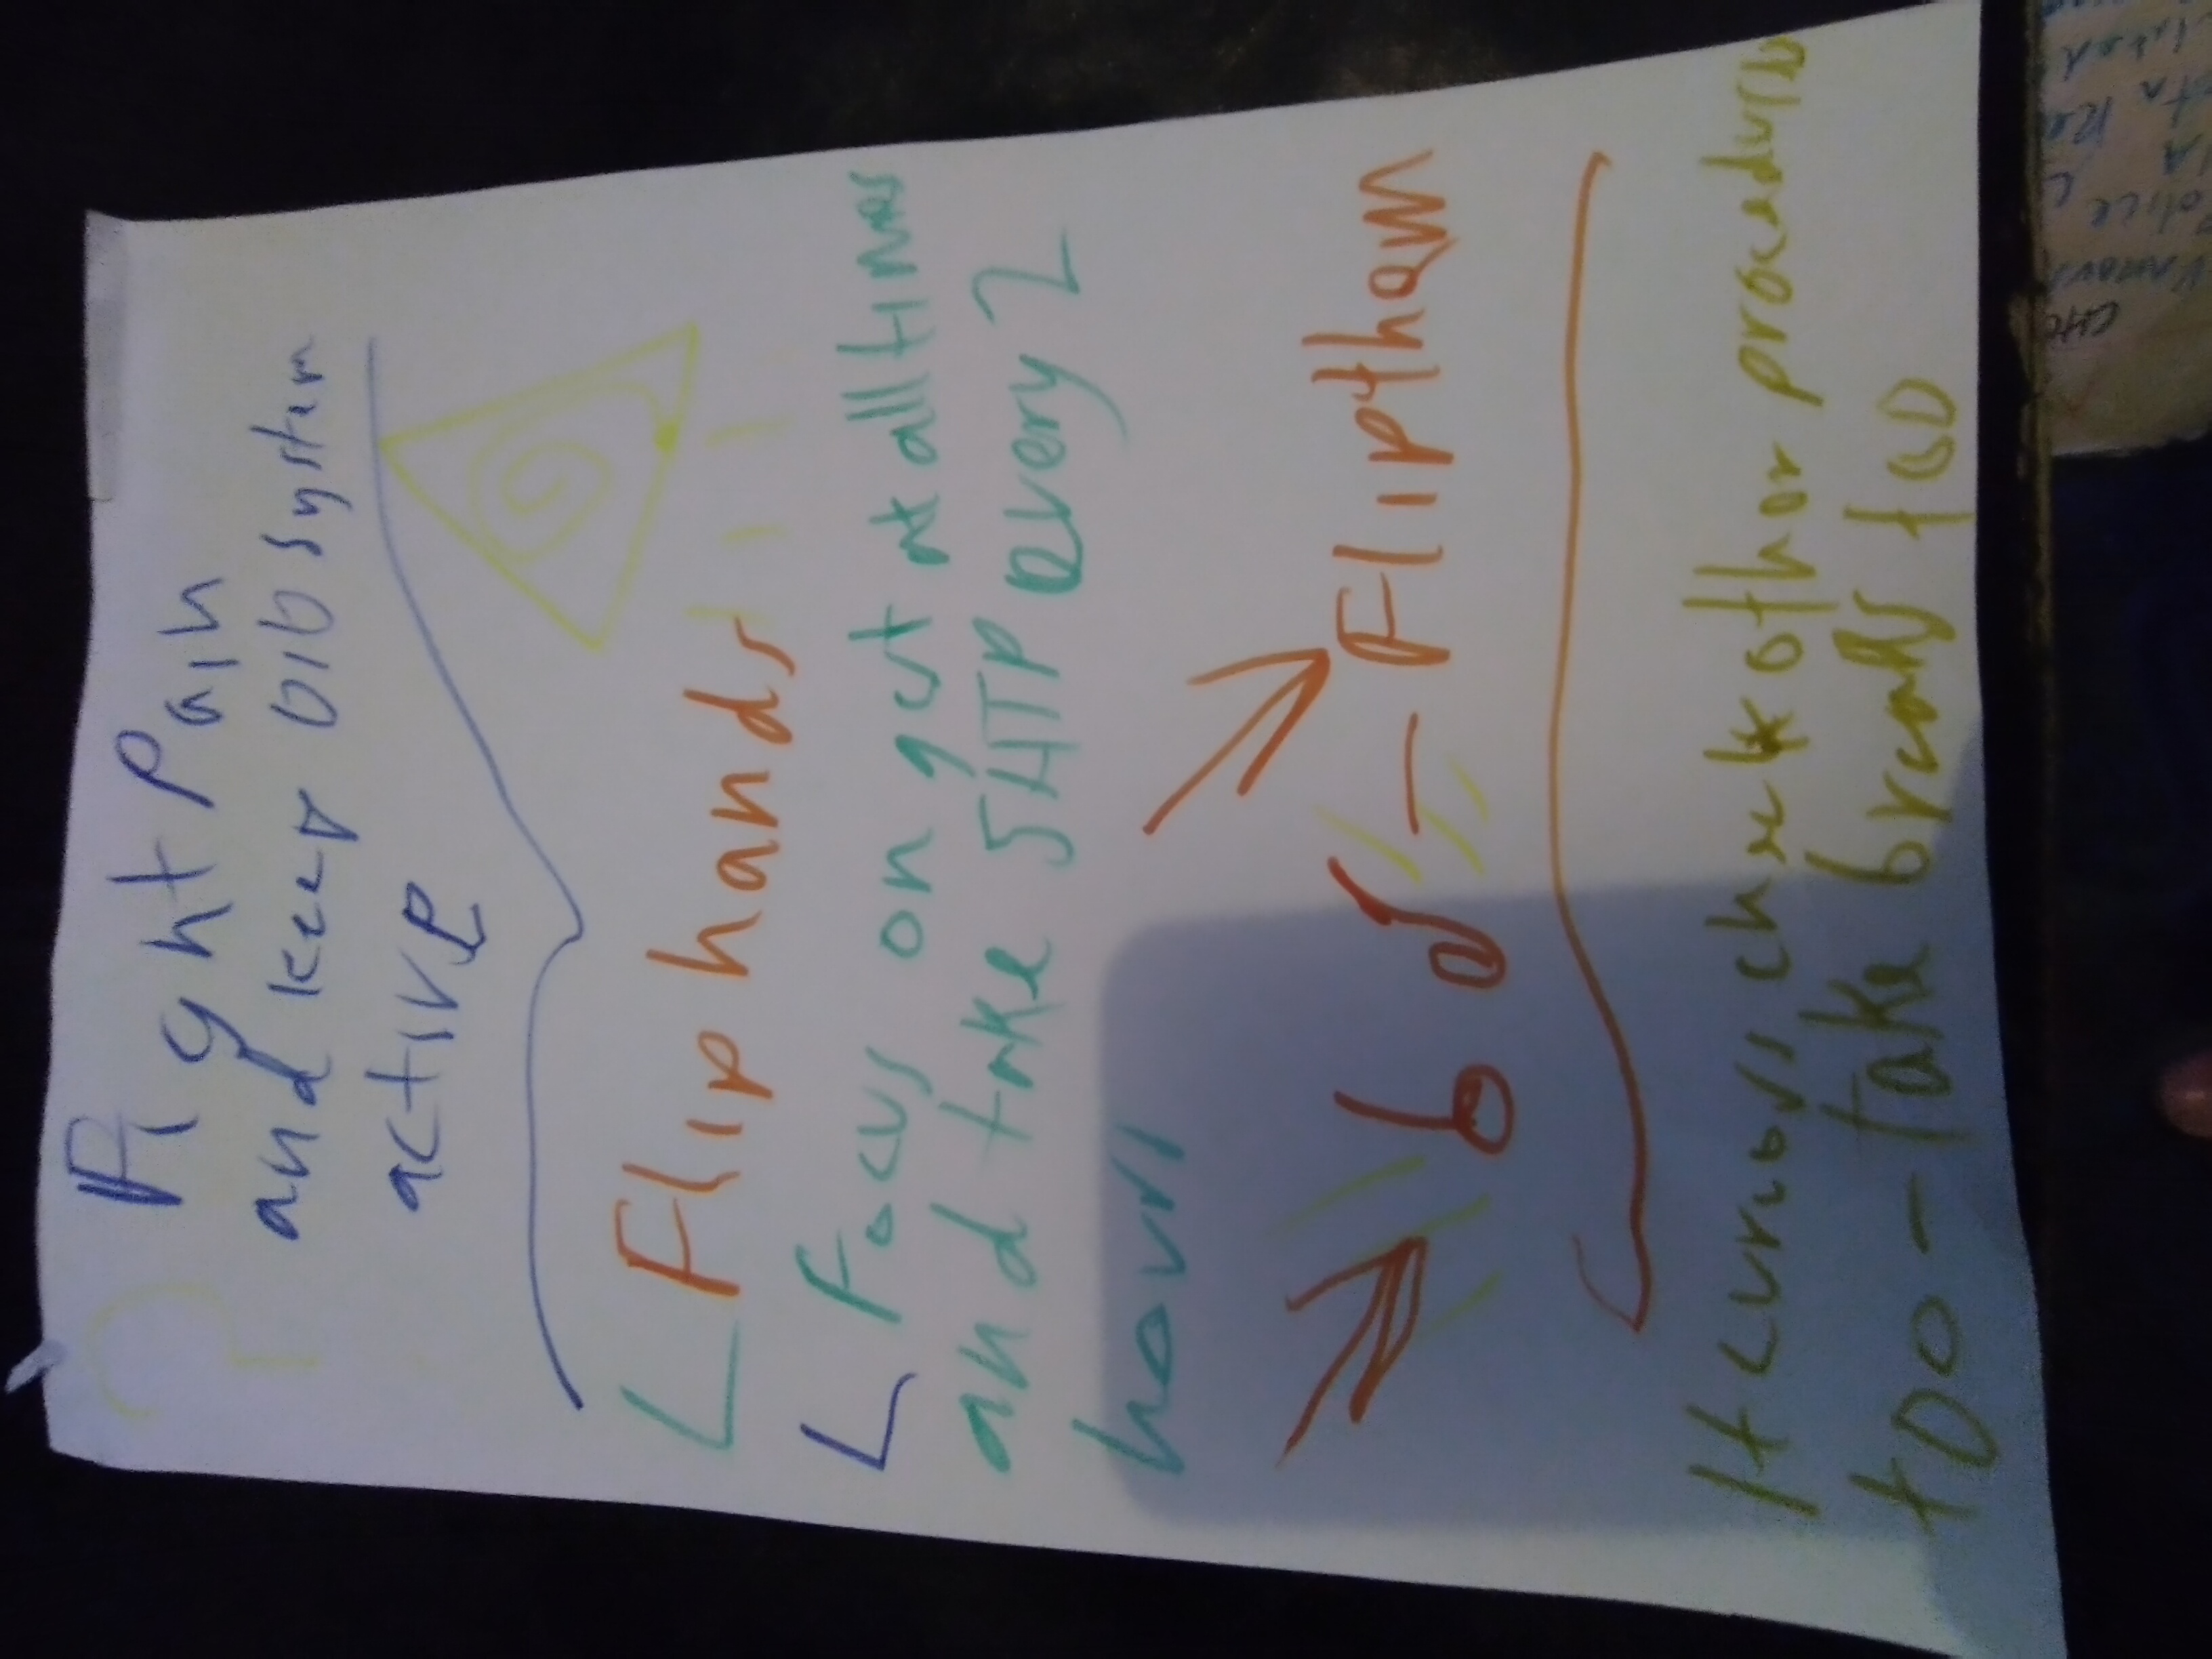 Fight Pain
and keep bib system
active
Flip hands
Focus on gut at all times
and take 5HTP every 2
hours
b d - Flip thom
It curious check othor procedures
too - take breaks too